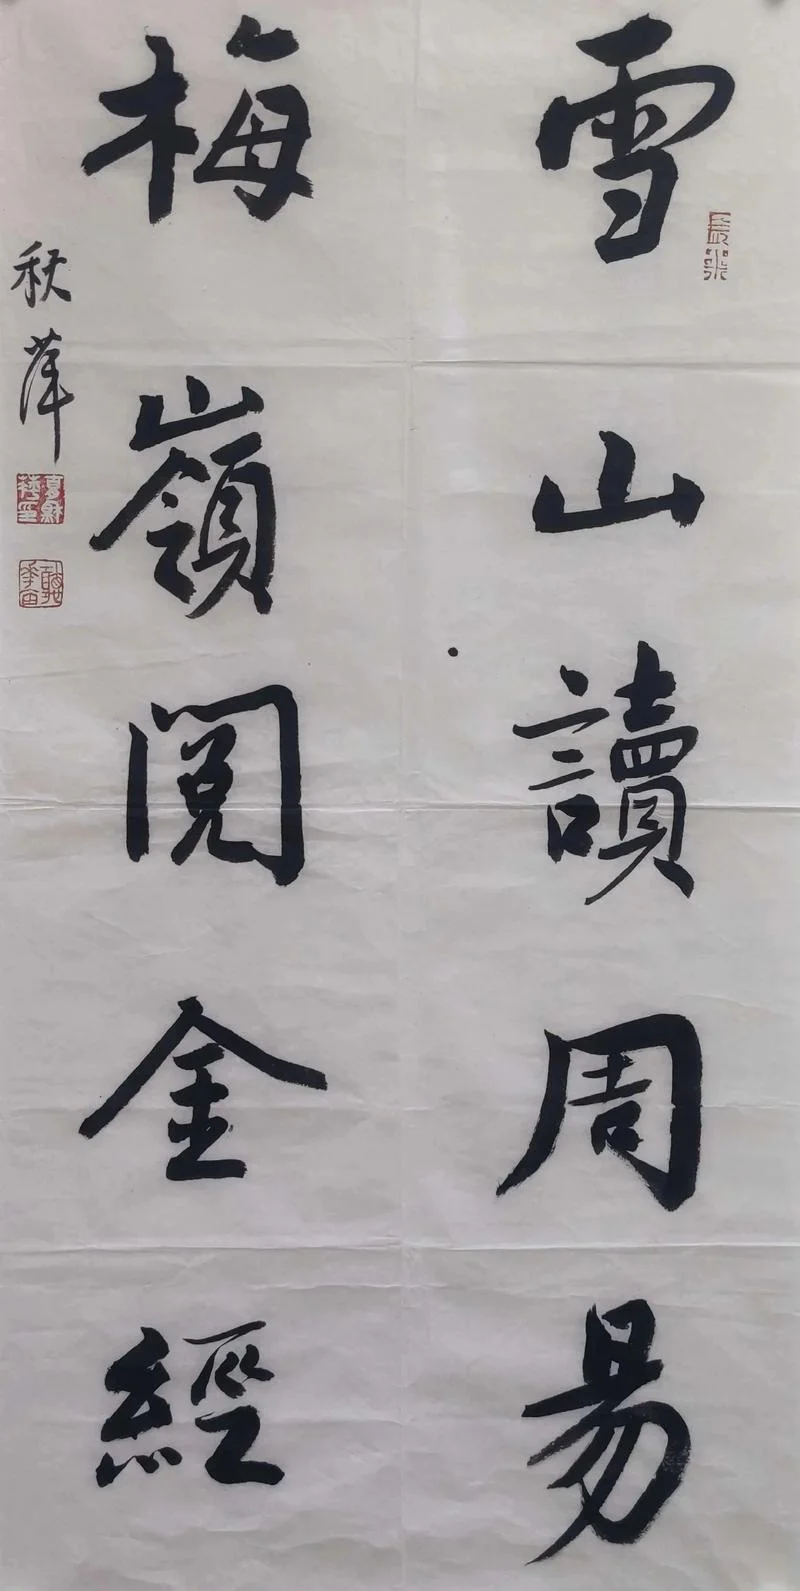 雪山讀周易
梅嶺閱金經
秋萍